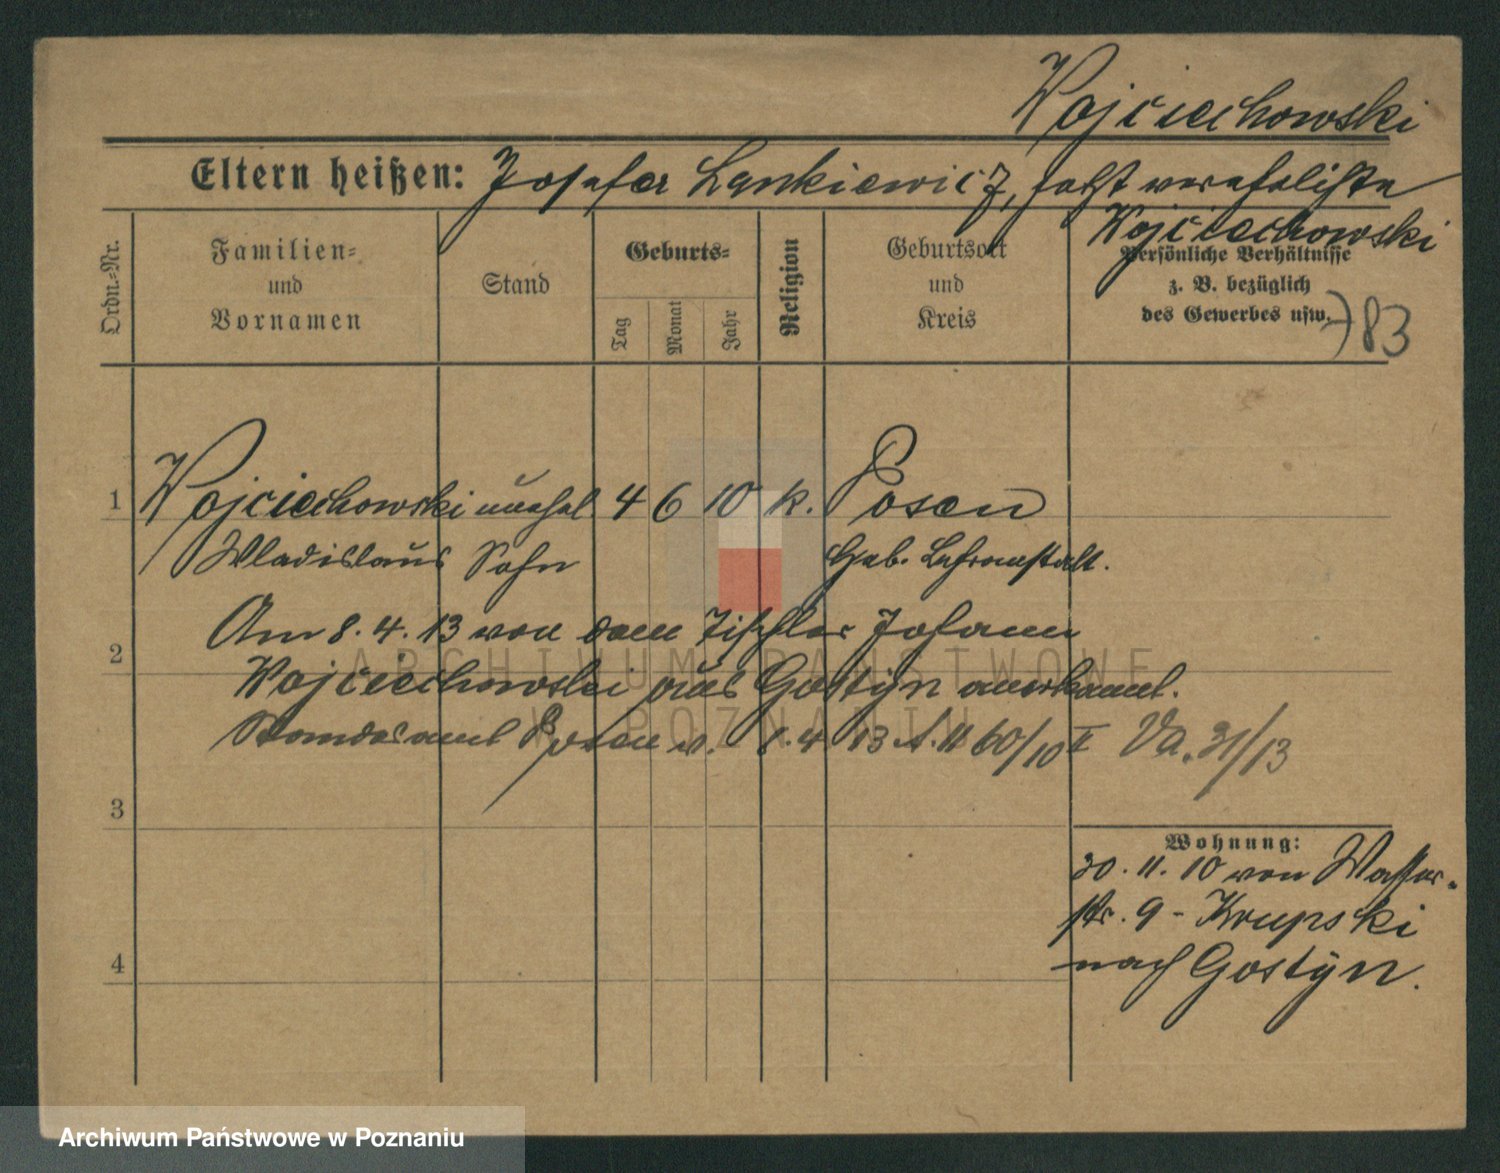 Wojciechowski
Eltern heißen: Josefa Lankiewicz, jetzt verehelichte
Wojciechowski
Ordn.-Nr.
Familien-
und
Vornamen
Stand
Geburts-
Tag
Monat
Jahr
Religion
Geburtsort
und
Kreis
Persönliche Verhältnisse
z. B. bezüglich
des Gewerbes usw.
83
1 Wojciechowski unehel. 4 6 10 k. Posen
Wladislaus Sohn Geb. Lehranstalt.
Am 8. 4. 13 von dem Tischler Johann
2
Wojciechowski aus Gostÿn anerkannt.
Standesamt Posen v. 8. 4. 13 A. II 60/10 I Va. 31/13
3
Wohnung:
30. 11. 10 von Wasser-
str. 9 - Krupski
4 nach Gostÿn.
ARCHIWUM PAŃSTWOWE
W POZNANIU
Archiwum Państwowe w Poznaniu